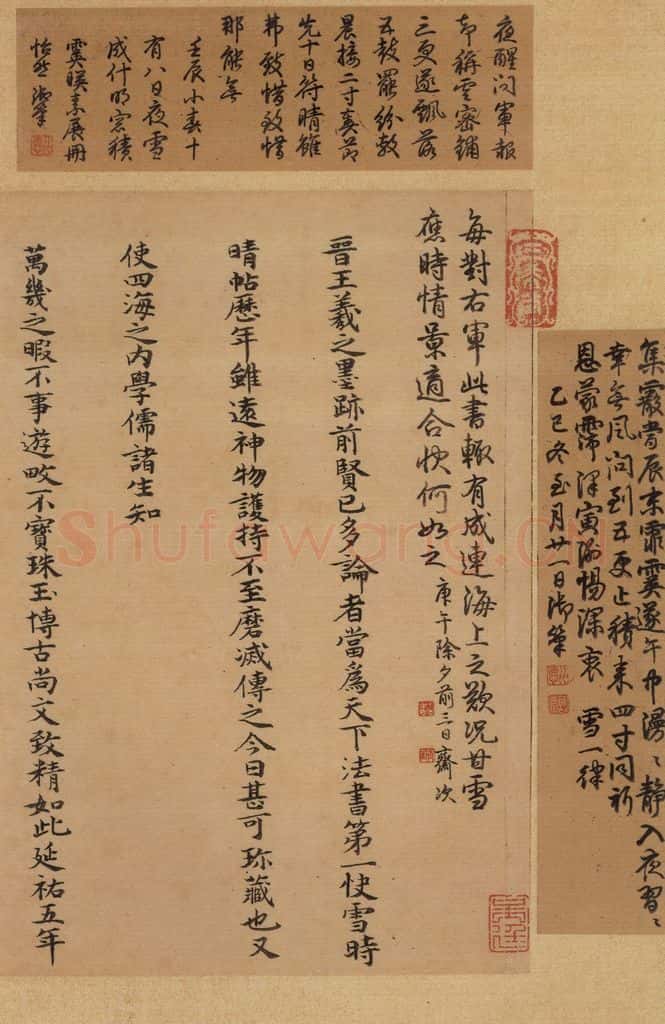 集霰當辰東霏霙遂午中漫〻靜入夜習〻
幸無風問到五更止積來四寸同祈
恩蒙霈澤寅謝惕深衷 雪一律
乙巳冬至月廿一日御筆
夜醒問軍報
却稱雲密鋪
三更遂飄落
五鼓罷紛敷
晨接二寸奏節
先十日符晴雖
弗致惜致惜
那能無
壬辰小春十
有八日夜雪
成什明窓積
霙映素展冊
怡然御筆
每對右軍此書輒有成連海上之歎況甘雪
應時情景適合快何如之 庚午除夕前三日齋次
晉王羲之墨跡前賢已多論者當為天下法書第一快雪時
晴帖歷年雖遠神物護持不至磨滅傳之今日甚可珍藏也又
使四海之內學儒諸生知
萬幾之暇不事遊畋不寶珠玉博古尚文致精如此延祐五年
Shufawang.cn